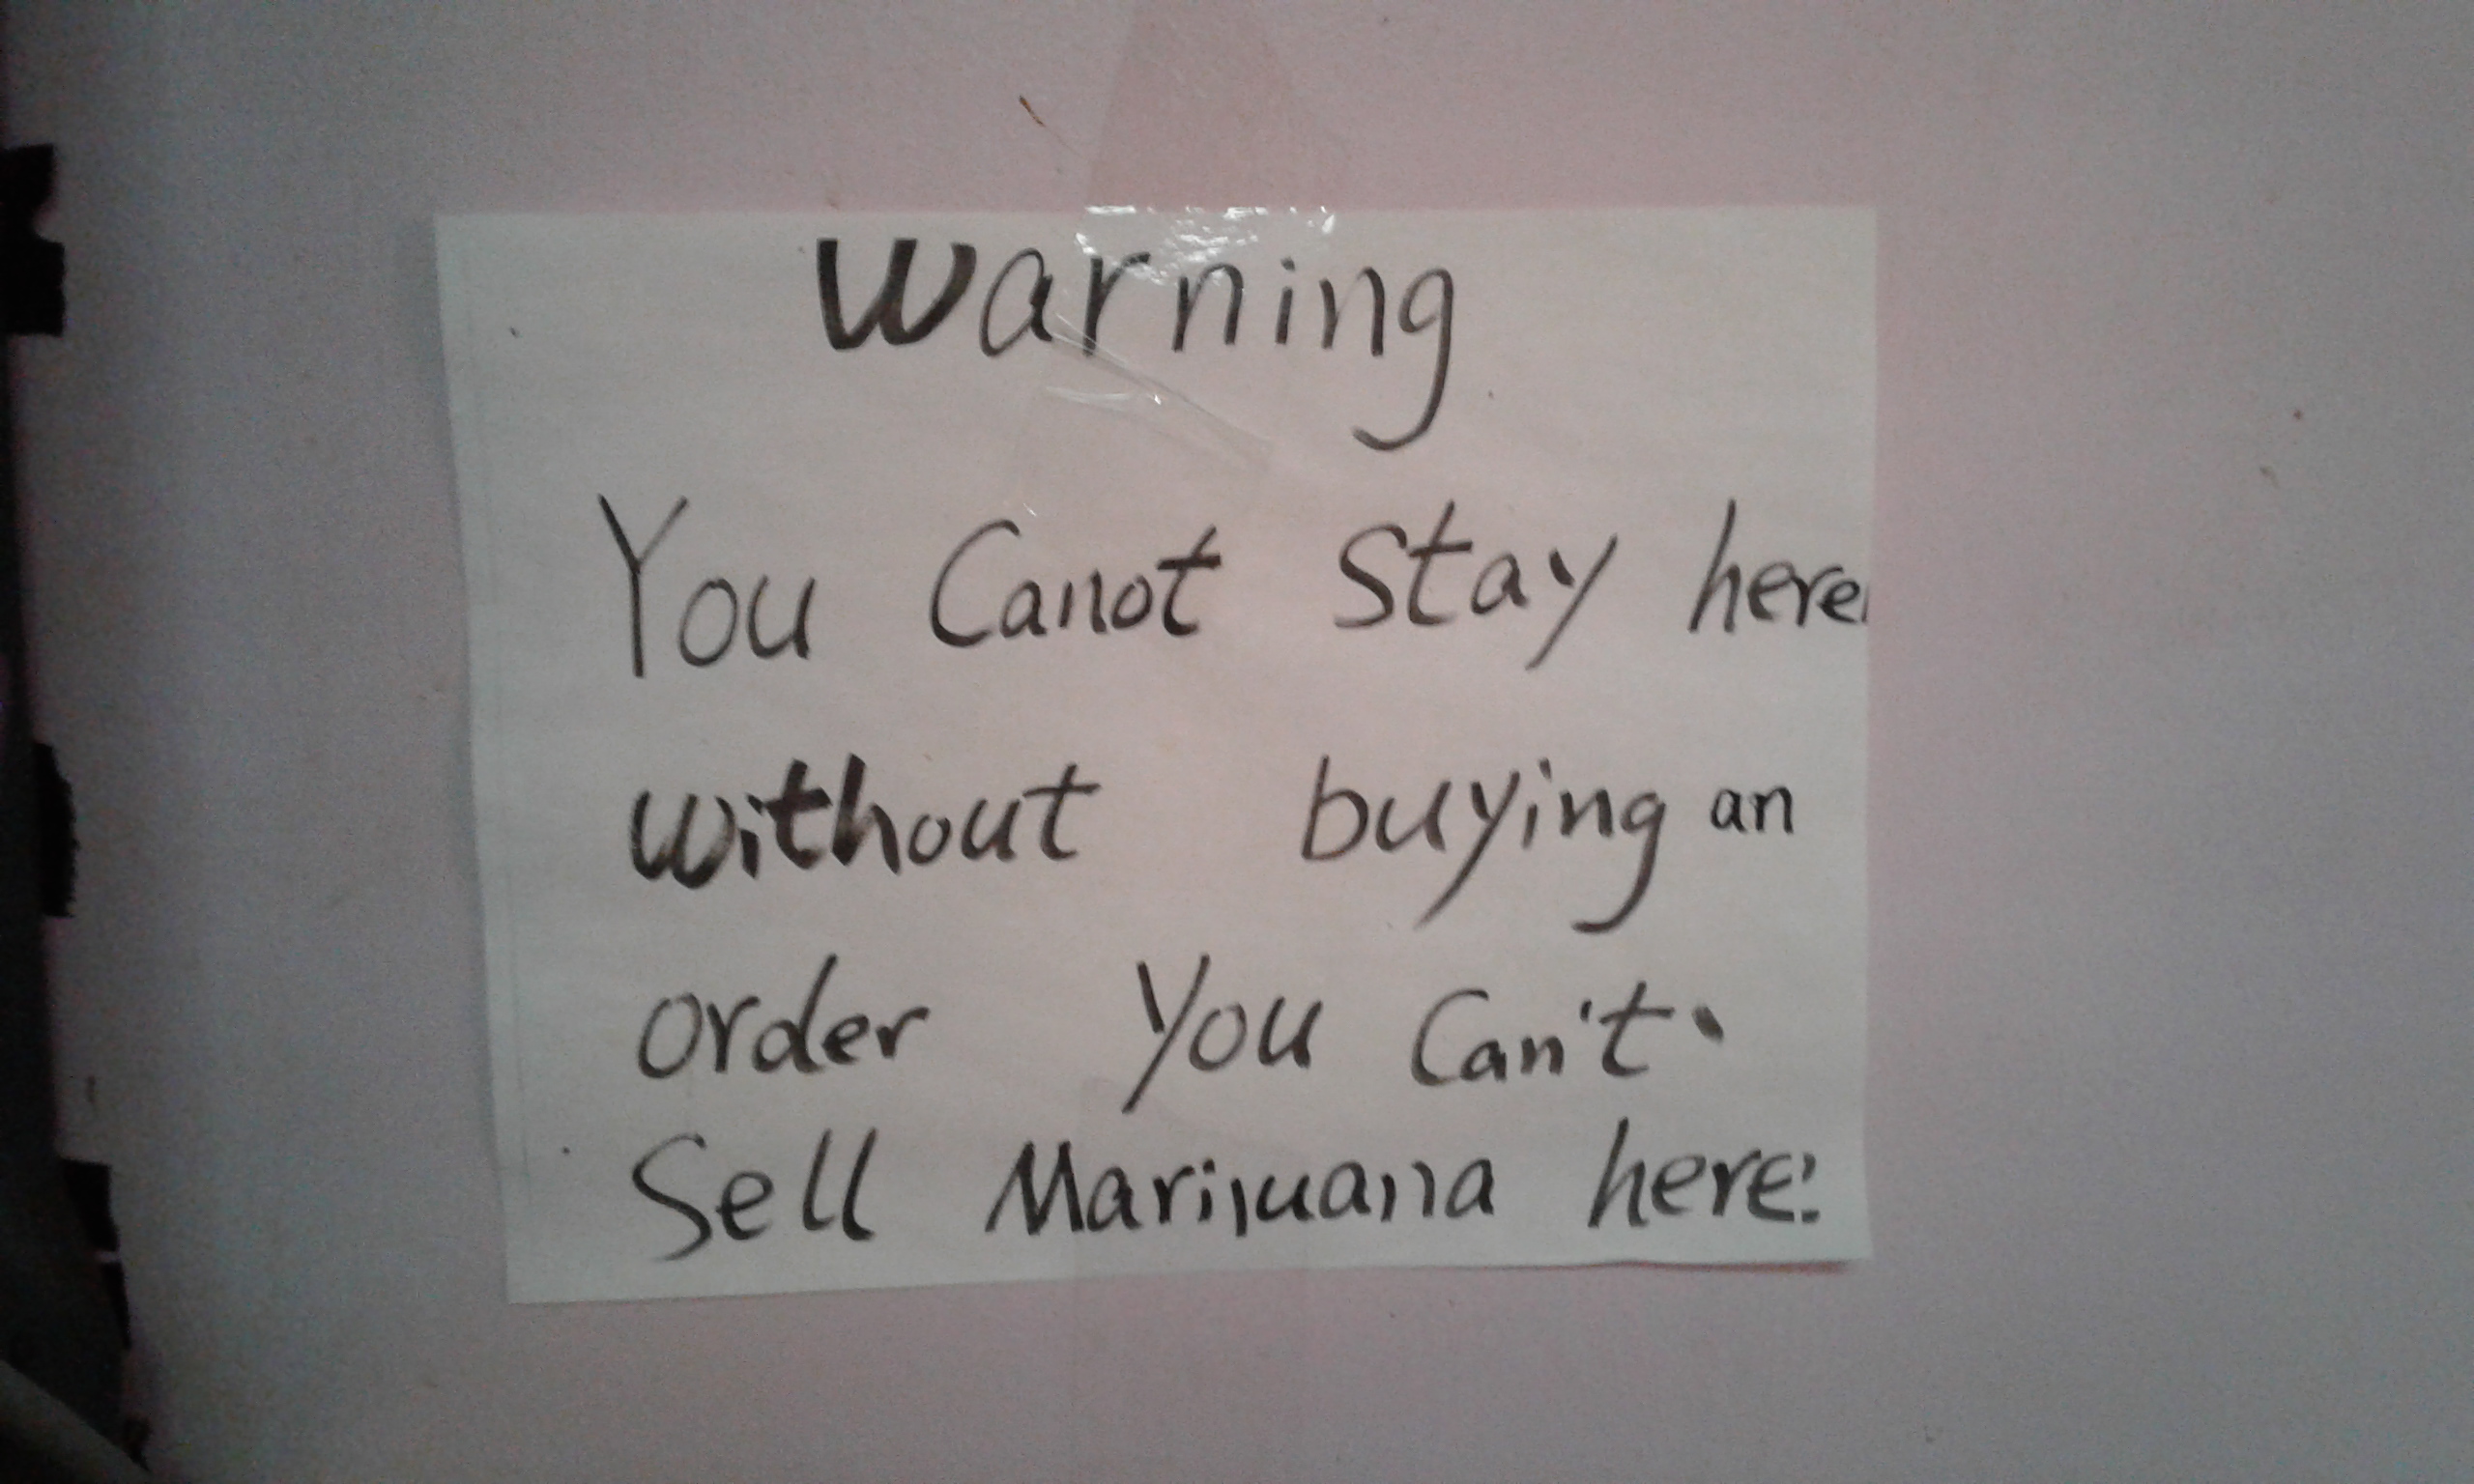 Warning
You Canot Stay here
without buying an
order You Can't
Sell Marijuana here!